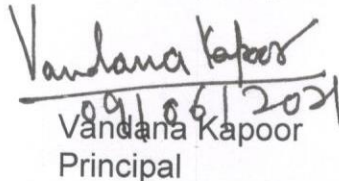 Vandana Kapoor
09/06/2021
Vandana Kapoor
Principal